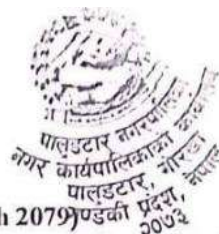 पालुङटार नगरपालिका
नगर कार्यपालिकाको कार्यालय
पालुङटार, गोरखा
गण्डकी प्रदेश, नेपाल
२०७३
h 2079)